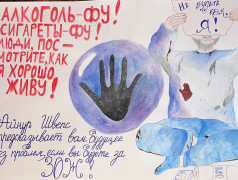 АЛКОГОЛЬ-ФУ!
СИГАРЕТЫ-ФУ!
ЛЮДИ, ПОС-
МОТРИТЕ, КАК
Я ХОРОШО
ЖИВУ!
НЕ
Я!
Айнур Швепс
предсказывает вам будущее
без проблем, если вы будете за
ЗОЖ!